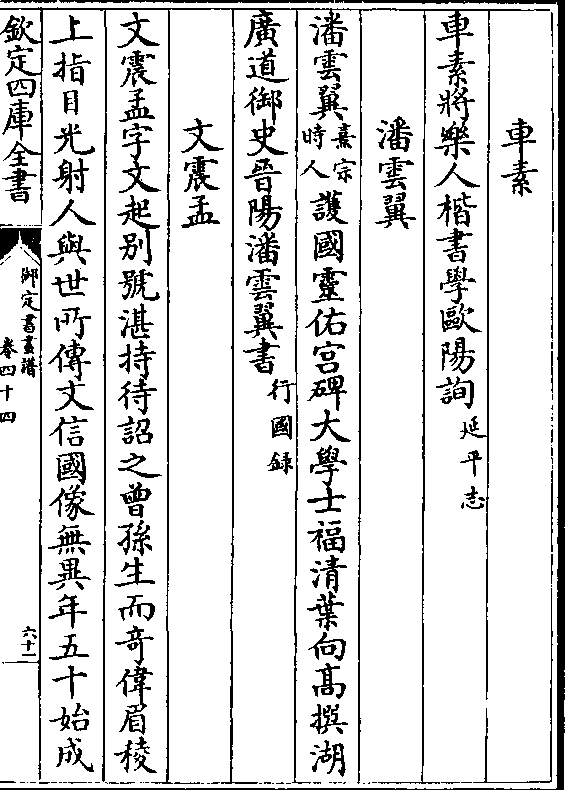 車素
車素將樂人楷書學歐陽詢延平志
潘雲翼
潘雲翼熹宗時人護國靈佑宫碑大學士福清葉向髙撰湖
廣道御史晉陽潘雲翼書行國録
文震孟
文震孟字文起别號湛持待詔之曾孫生而奇偉眉稜
上指目光射人與世所傳文信國像無異年五十始成
欽定四庫全書
御定書畫譜
卷四十四
六十一